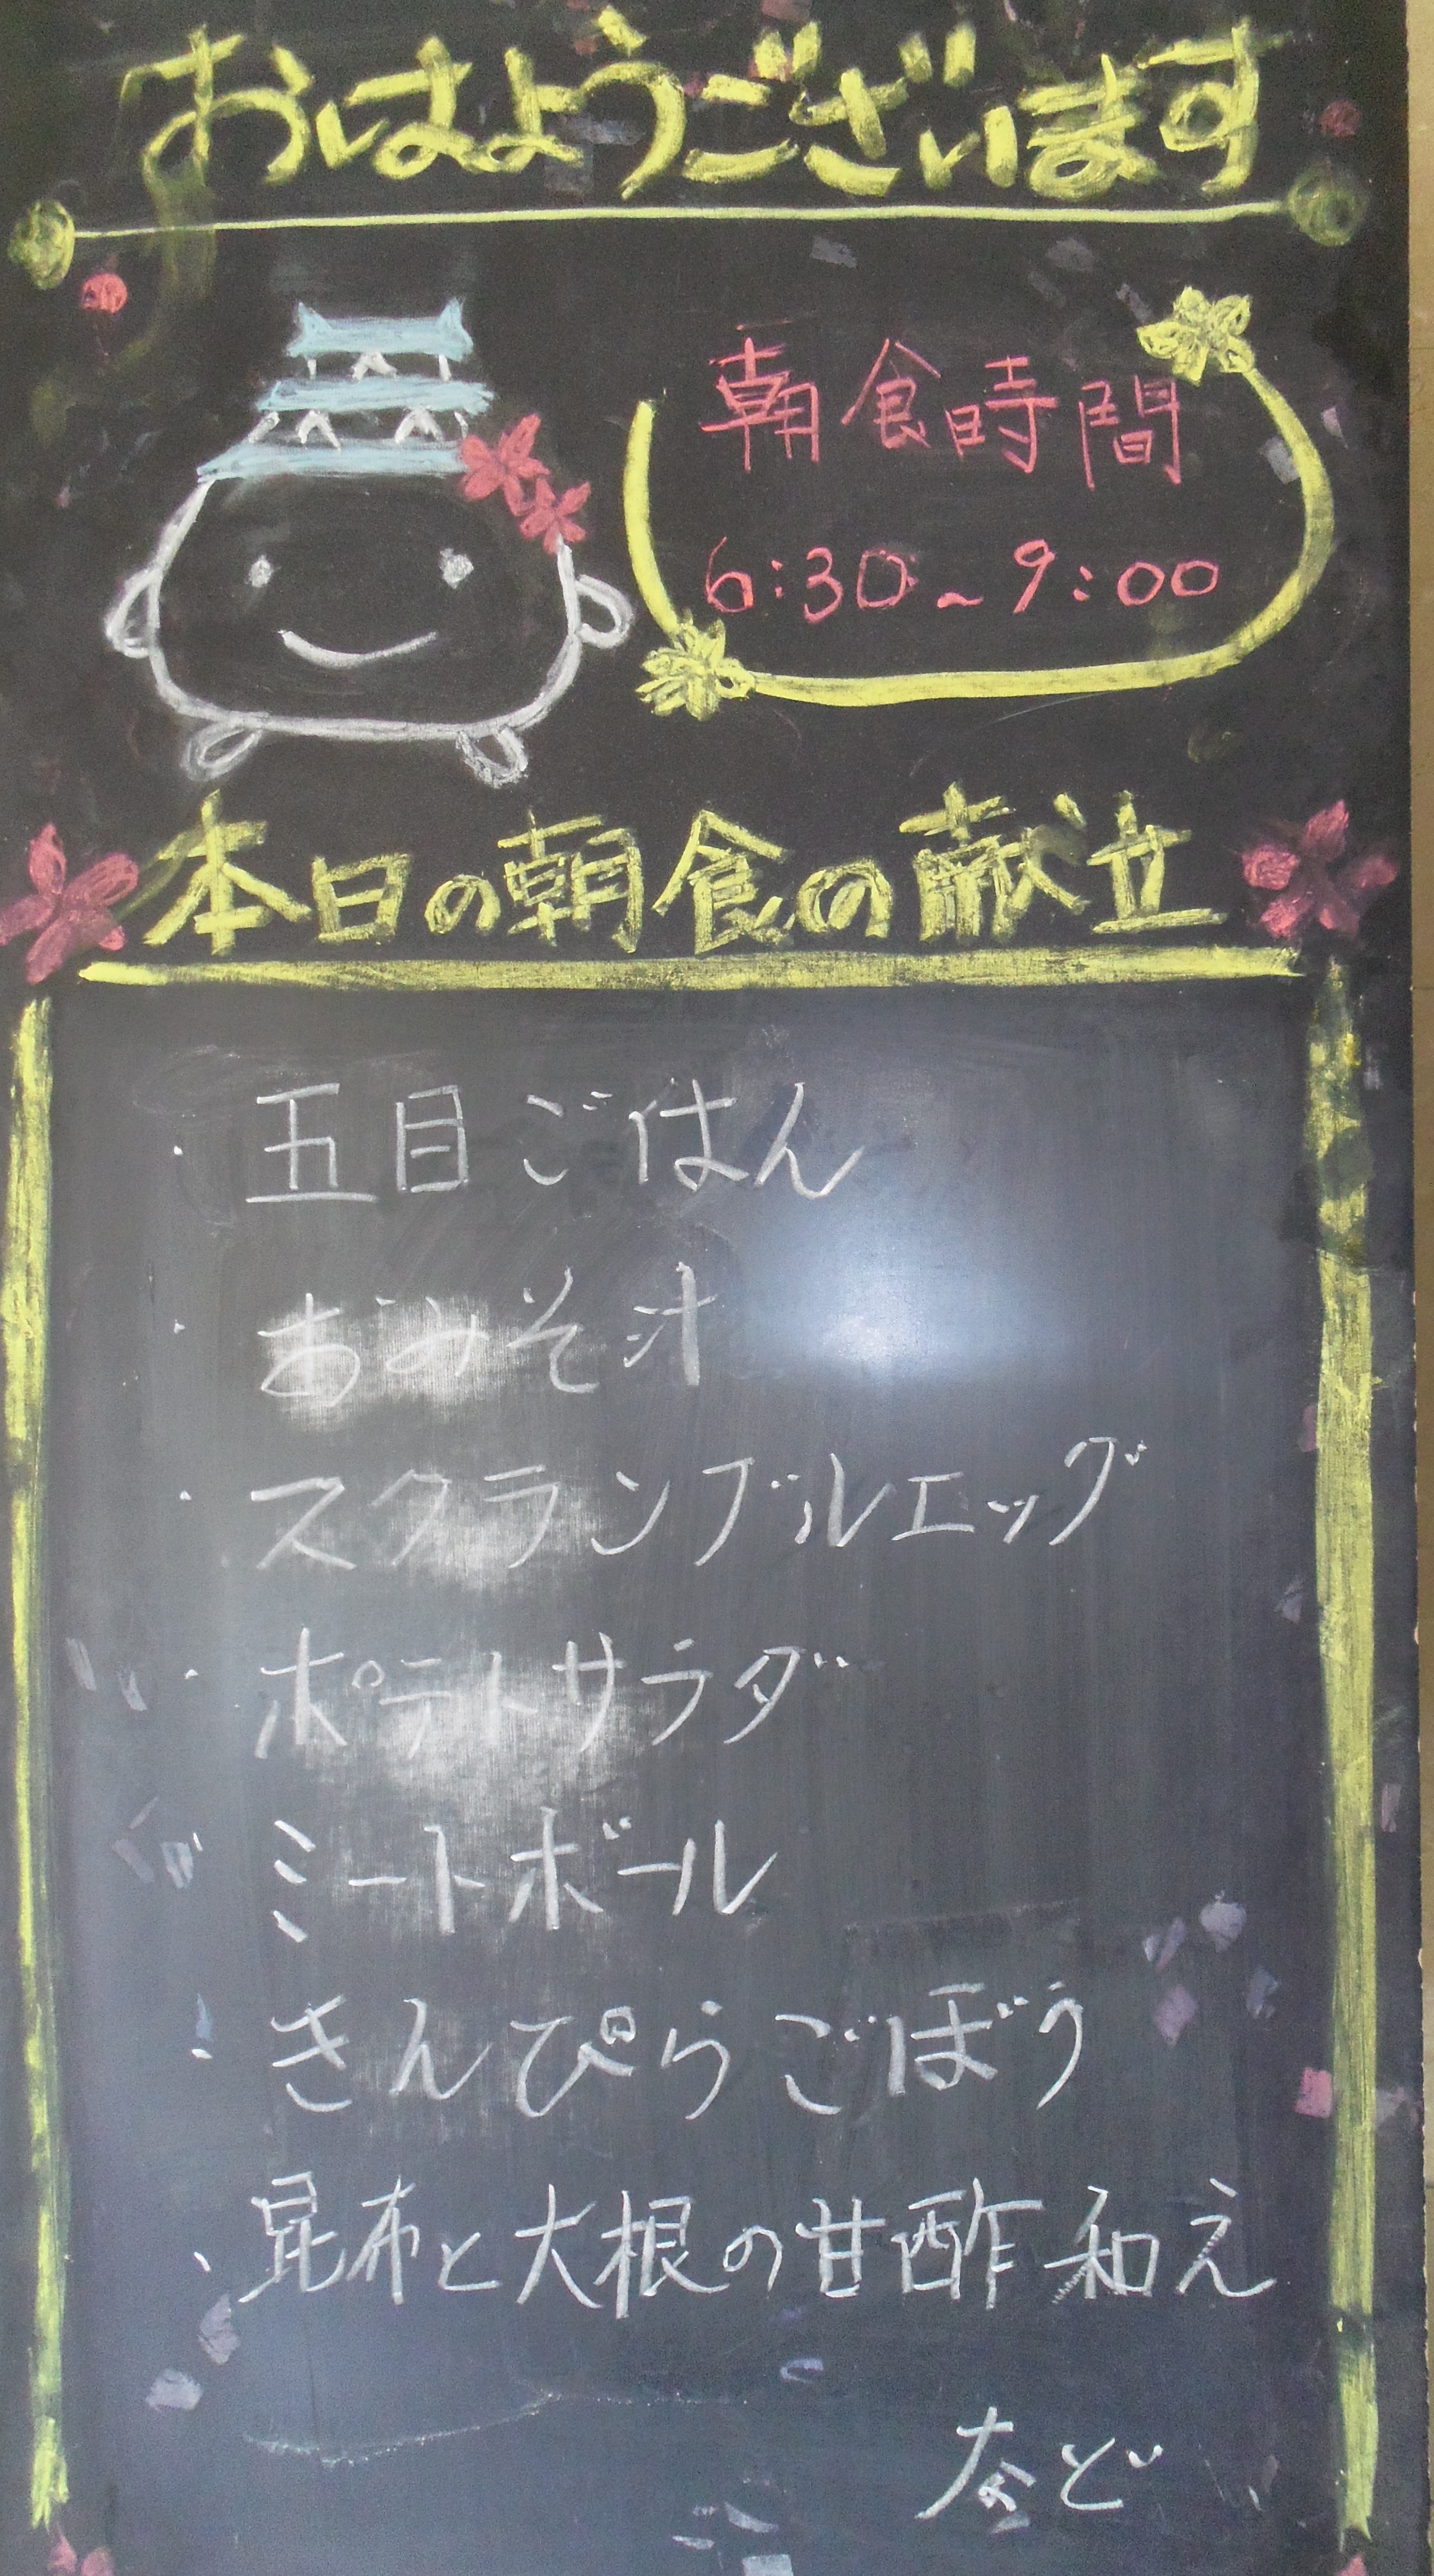 おはようございます
朝食時間
6:30~9:00
本日の朝食の献立
・五目ごはん
・おみそ汁
・スクランブルエッグ
・ポテトサラダ
ミートボール
・きんぴらごぼう
・昆布と大根の甘酢和え
など